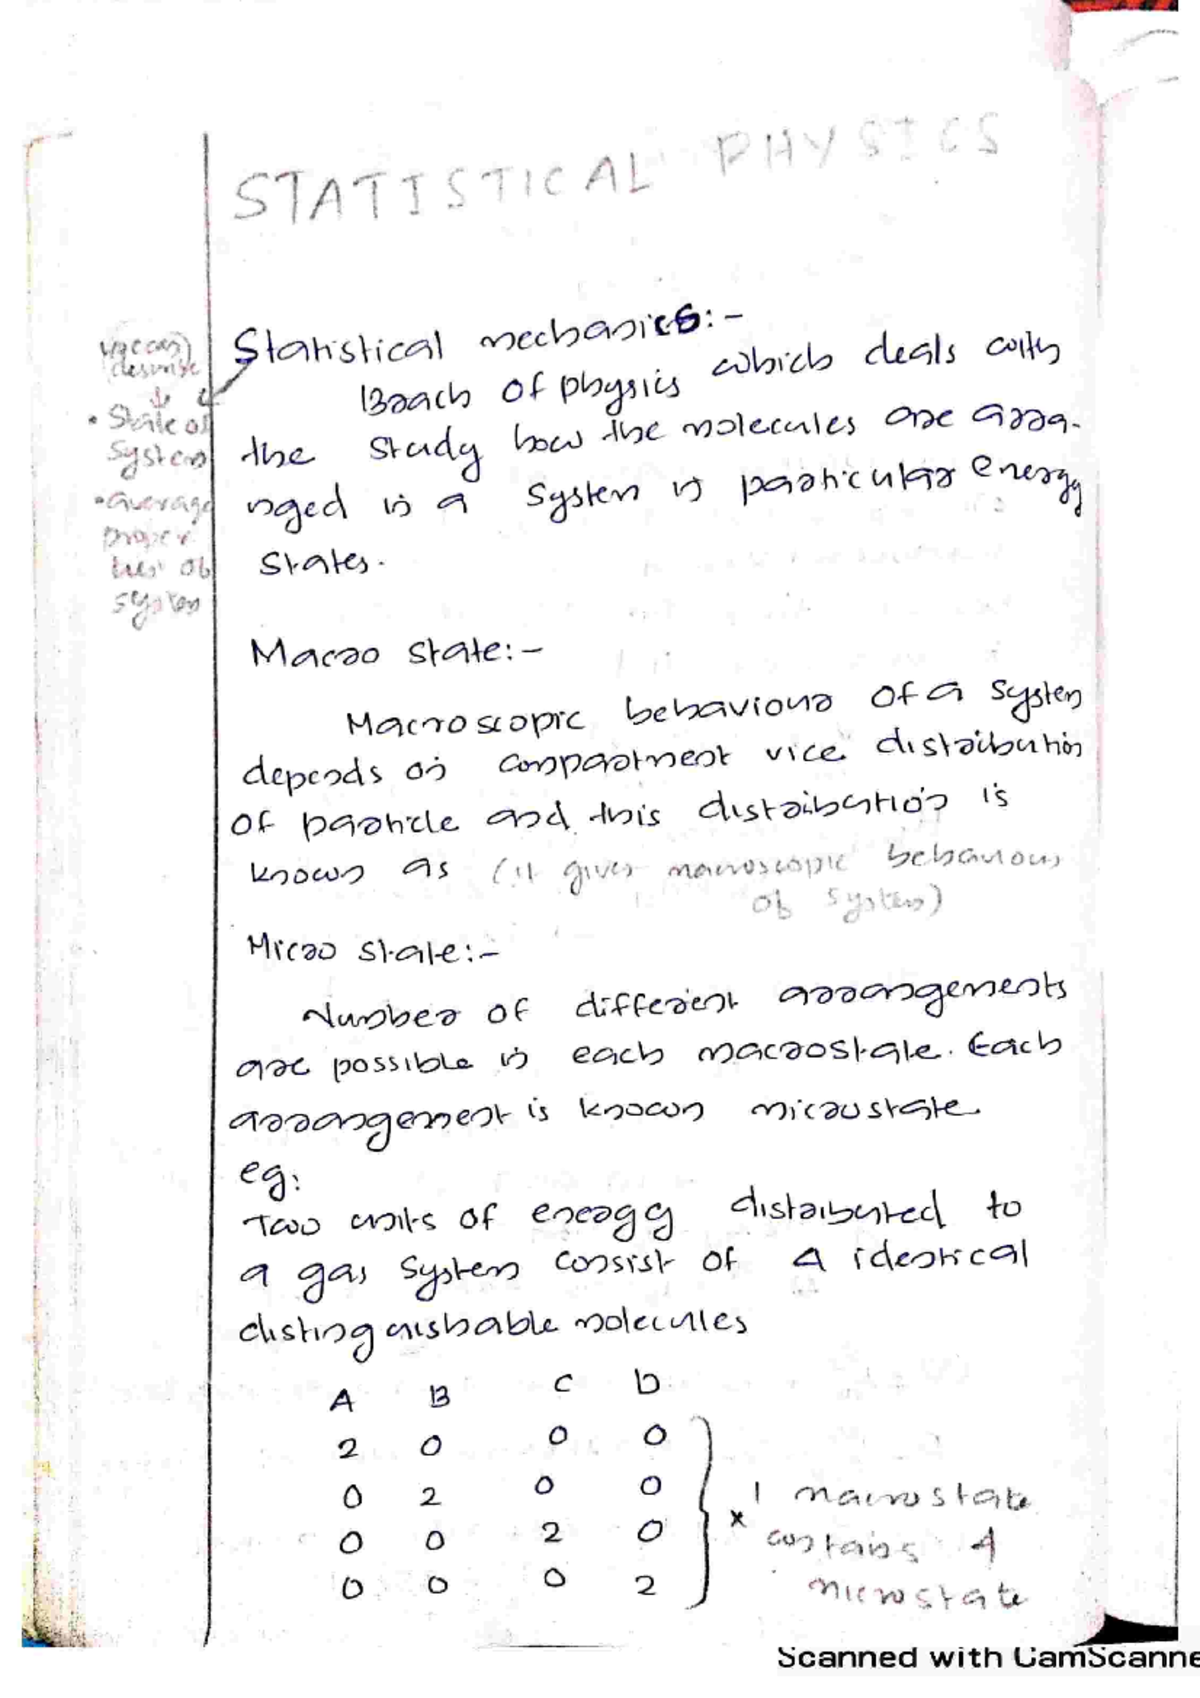 STATISTICAL PHYSICS
Statistical mechanics:-
Brach of physics which deals with
the study how the molecules are arra-
nged in a system in particular energy
states.
we can
describe
• State of
System
• average
proper
ties of
system
Macro state:-
Macroscopic behaviour of a system
depends on compartment vice distribution
of particle and this distribution is
known as (it gives macroscopic behaviour
of system)
Micro state:-
Number of different arrangements
are possible in each macrostate. Each
arrangement is known microstate.
eg:
Two units of energy distributed to
a gas system consist of 4 identical
distinguishable molecules
A B C D
2 0 0 0
0 2 0 0
0 0 2 0
0 0 0 2
* 1 macrostate
contains 4
microstate
Scanned with CamScanne